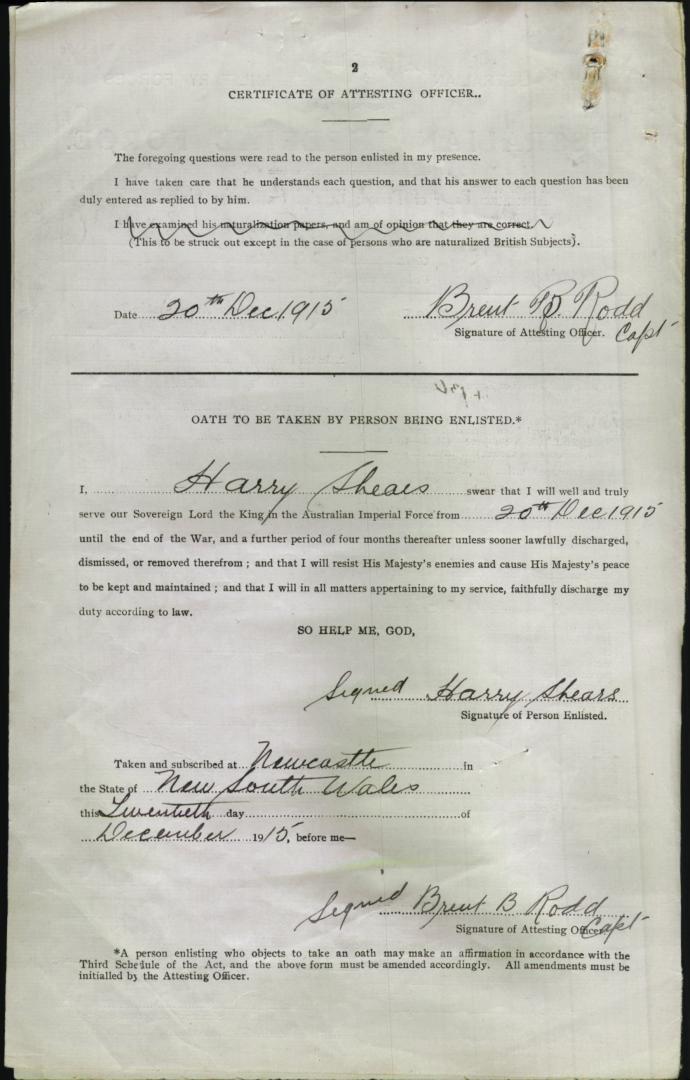 2
CERTIFICATE OF ATTESTING OFFICER..
The foregoing questions were read to the person enlisted in my presence.
I have taken care that he understands each question, and that his answer to each question has been
duly entered as replied to by him.
I have examined his naturalization papers, and am of opinion that they are correct.
(This to be struck out except in the case of persons who are naturalized British Subjects).
Date 20th Dec 1915 Brent B. Rodd
Signature of Attesting Officer. Capt
OATH TO BE TAKEN BY PERSON BEING ENLISTED.*
I, Harry Shears swear that I will well and truly
serve our Sovereign Lord the King in the Australian Imperial Force from 20th Dec 1915
until the end of the War, and a further period of four months thereafter unless sooner lawfully discharged,
dismissed, or removed therefrom ; and that I will resist His Majesty's enemies and cause His Majesty's peace
to be kept and maintained ; and that I will in all matters appertaining to my service, faithfully discharge my
duty according to law.
SO HELP ME, GOD,
Signed Harry Shears
Signature of Person Enlisted.
Taken and subscribed at Newcastle in
the State of New South Wales
this Twentieth day of
December 1915, before me—
Signed Brent B Rodd
Signature of Attesting Officer Capt
*A person enlisting who objects to take an oath may make an affirmation in accordance with the
Third Schedule of the Act, and the above form must be amended accordingly. All amendments must be
initialled by the Attesting Officer.